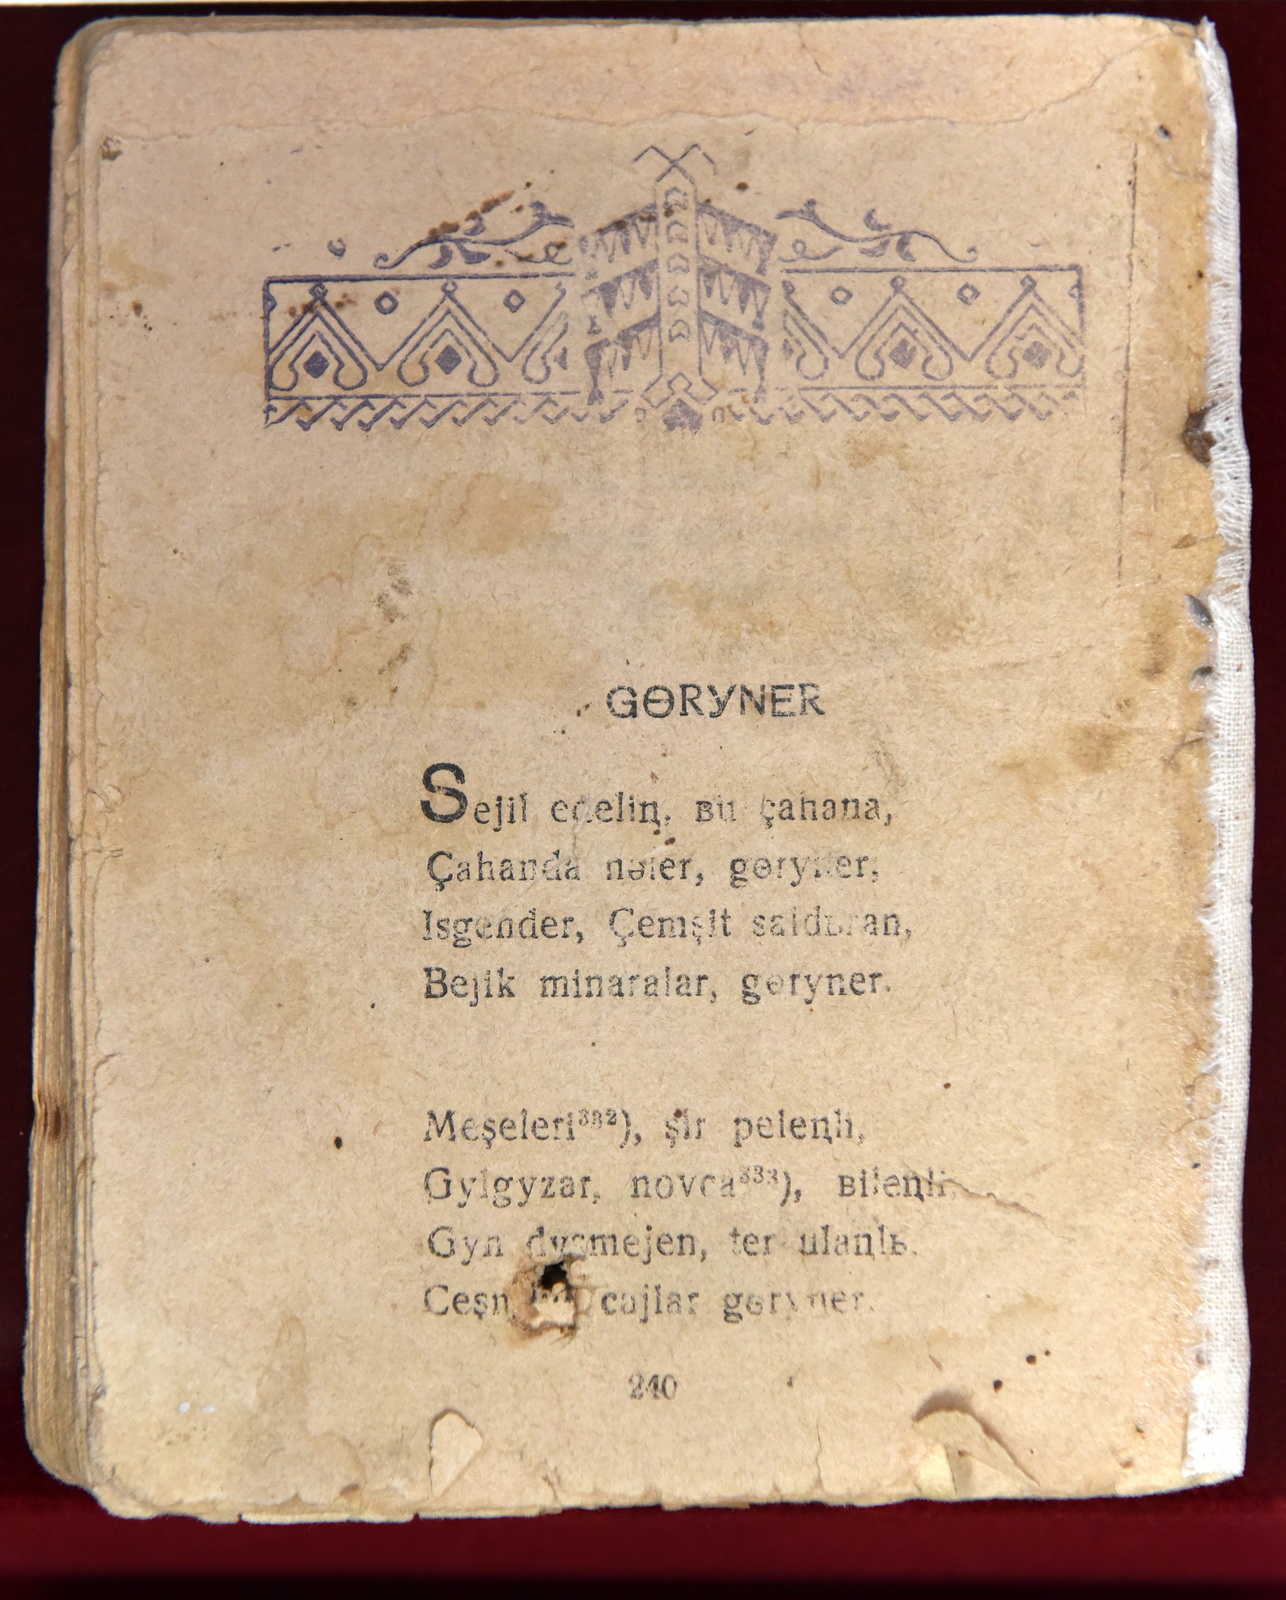 GɵRYNER
Sejil edelin̡, ʙu çahana,
Çahanda nəler, gɵryner,
Isgender, Çemşit saldьran,
Bejik minaralar, gɵryner.
Meşeleri³³²), şir pelen̡li,
Gylgyzar, novca³³³), ʙilen̡li,
Gyn dyşmejen, ter ulan̡lь.
Ceşn cojlar gɵryner.
240